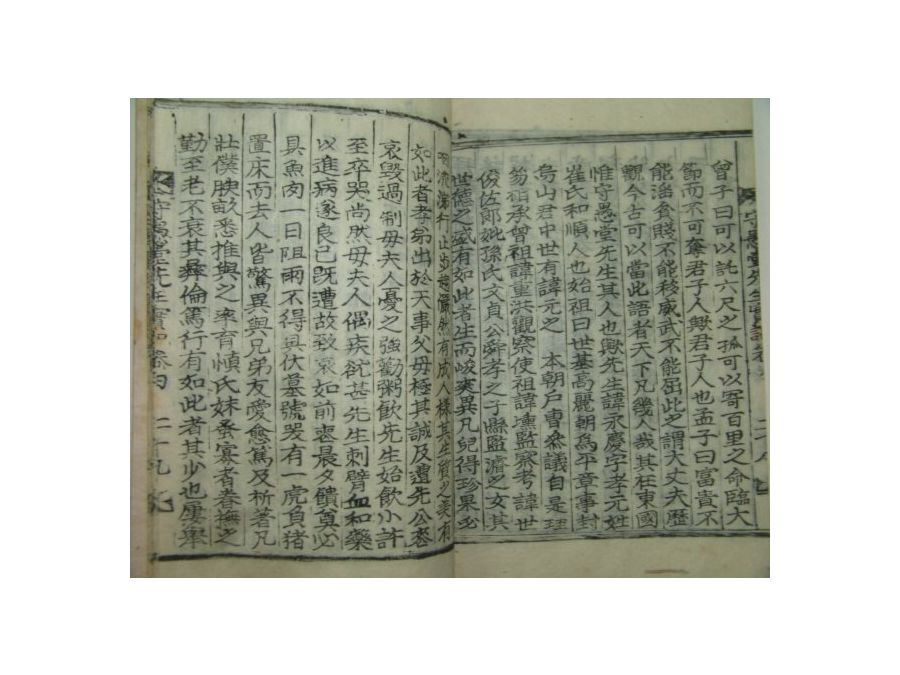 曾子曰可以託六尺之孤可以寄百里之命臨大
節而不可奪君子人歟君子人也孟子曰富貴不
能淫貧賤不能移威武不能屈此之謂大丈夫歷
觀今古可以當此語者天下凡幾人哉其在東國
惟守愚堂先生其人也歟先生諱永慶字孝元姓
崔氏和順人也始祖曰世基高麗朝為平章事封
烏山君中世有諱元之 本朝戶曹叅議自是珪
笏相承曾祖諱重洪觀察使祖諱壎監察考諱世
俊佐郎妣孫氏文貞公舜孝之子縣監濬之女其
世德之盛有如此者生而峻爽異凡兒得珍果必
有成人樣其生質之美有
如此者孝弟出於天事父母極其誠及遭先公喪
哀毀過制母夫人憂之強勸粥飲先生始飲小許
至卒哭尚然母夫人偶疾欲甚先生刺臂血和藥
以進病遂良已既遭故致哀如前喪晨夕饋奠必
具魚肉一日阻雨不得具伏墓號哭有一虎負猪
置床而去人皆驚異與兄弟友愛愈篤及析著凡
壯僕腴畝悉推與之率育慎氏妹蚤寡者眷撫之
勤至老不衰其彝倫篤行有如此者其少也屢舉
守愚堂先生實記卷 二十九